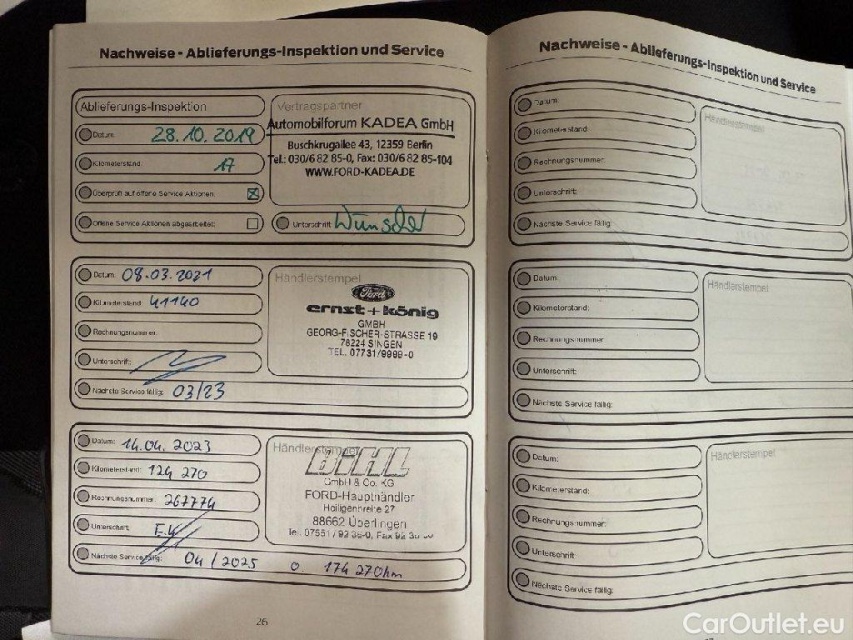 Nachweise - Ablieferungs-Inspektion und Service
Ablieferungs-Inspektion
Datum: 28.10.2019
Kilometerstand: 17
Überprüft auf offene Service Aktionen:
Offene Service Aktionen abgearbeitet:
Vertragspartner
Automobilforum KADEA GmbH
Buschkrugallee 43, 12359 Berlin
Tel.: 030/6 82 85-0, Fax: 030/6 82 85-104
WWW.FORD-KADEA.DE
Unterschrift:
Datum: 08.03.2021
Kilometerstand: 41140
Rechnungsnummer:
Unterschrift:
Nächste Service fällig: 03/23
Händlerstempel
Ford
ernst+könig
GMBH
GEORG-FISCHER-STRASSE 19
78224 SINGEN
TEL. 07731/9999-0
Datum: 14.04.2023
Kilometerstand: 124 270
Rechnungsnummer: 267774
Unterschrift:
Nächste Service fällig: 04/2025 o 174 270km
Händlerstempel
GmbH & Co. KG
FORD-Haupthändler
Heiligenreite 27
88662 Überlingen
26
Nachweise - Ablieferungs-Inspektion und Service
Datum:
Kilometerstand:
Rechnungsnummer:
Unterschrift:
Nächste Service fällig:
Händlerstempel
Datum:
Kilometerstand:
Rechnungsnummer:
Unterschrift:
Nächste Service fällig:
Händlerstempel
Datum:
Kilometerstand:
Rechnungsnummer:
Unterschrift:
Nächste Service fällig:
Händlerstempel
CarOutlet.eu